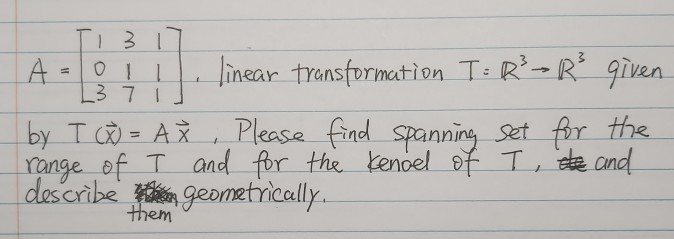 A = [1 3 1; 0 1 1; 3 7 1], linear transformation T: ℝ³→ℝ³ given
by T(x⃗) = A x⃗, Please find spanning set for the
range of T and for the kenoel of T, and
describe geometrically.
them